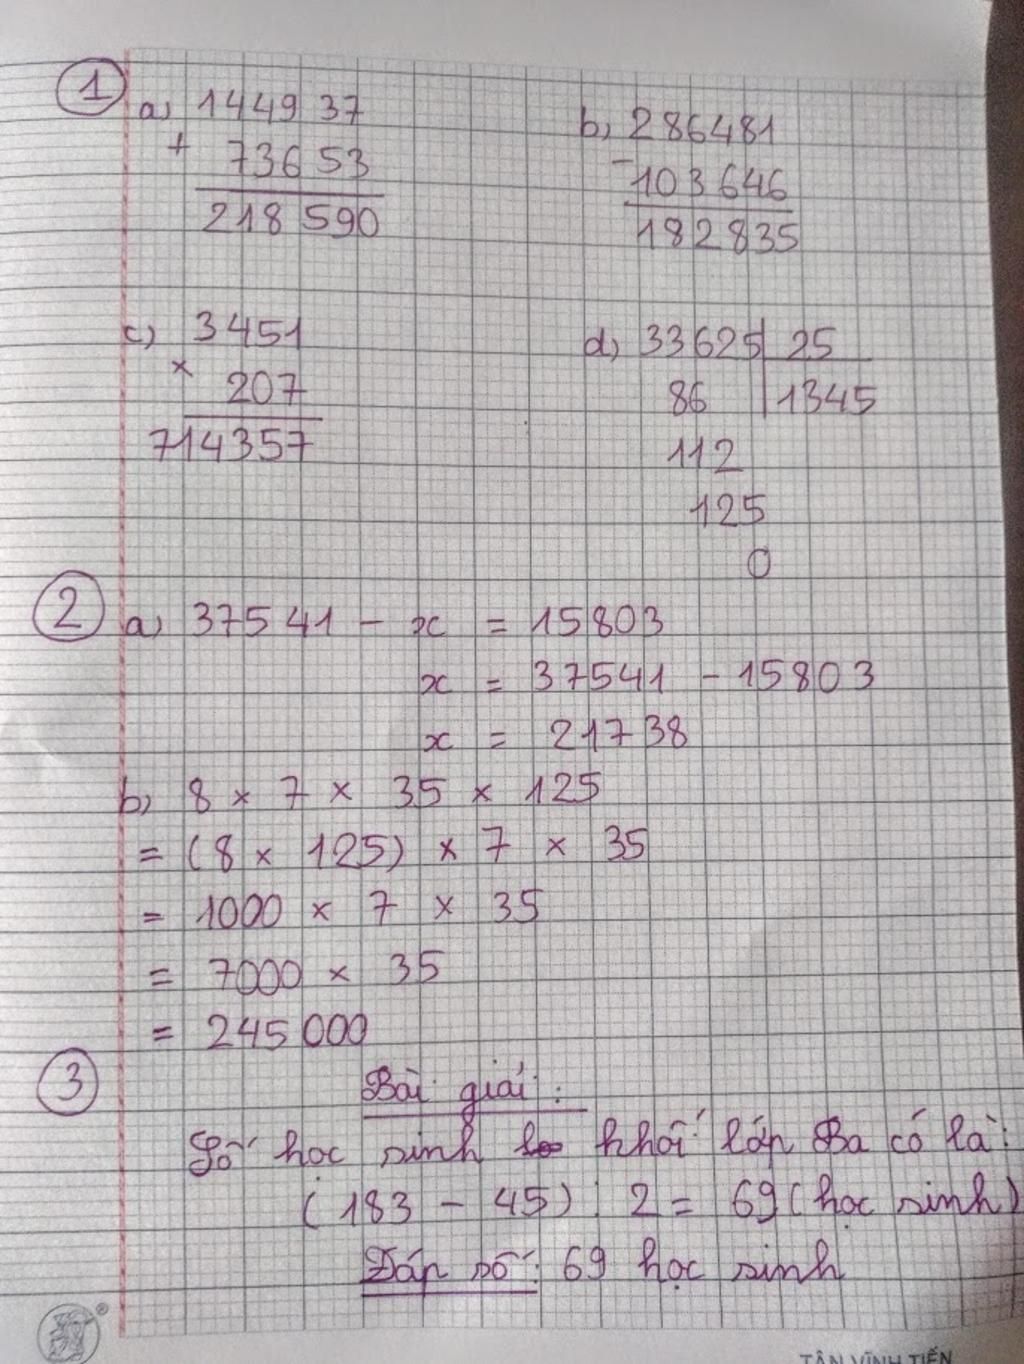 1
a) 144937
+ 73653
218590
b) 286481
- 103646
182835
c) 3451
× 207
714357
d) 33625 25
86 1345
112
125
0
2
a) 37541 - x = 15803
x = 37541 - 15803
x = 21738
b) 8 × 7 × 35 × 125
= (8 × 125) × 7 × 35
= 1000 × 7 × 35
= 7000 × 35
= 245000
3
Bài giải:
Số học sinh khối lớp Ba có là:
(183 - 45) : 2 = 69 (học sinh)
Đáp số: 69 học sinh
®
TÂN VĨNH TIẾN